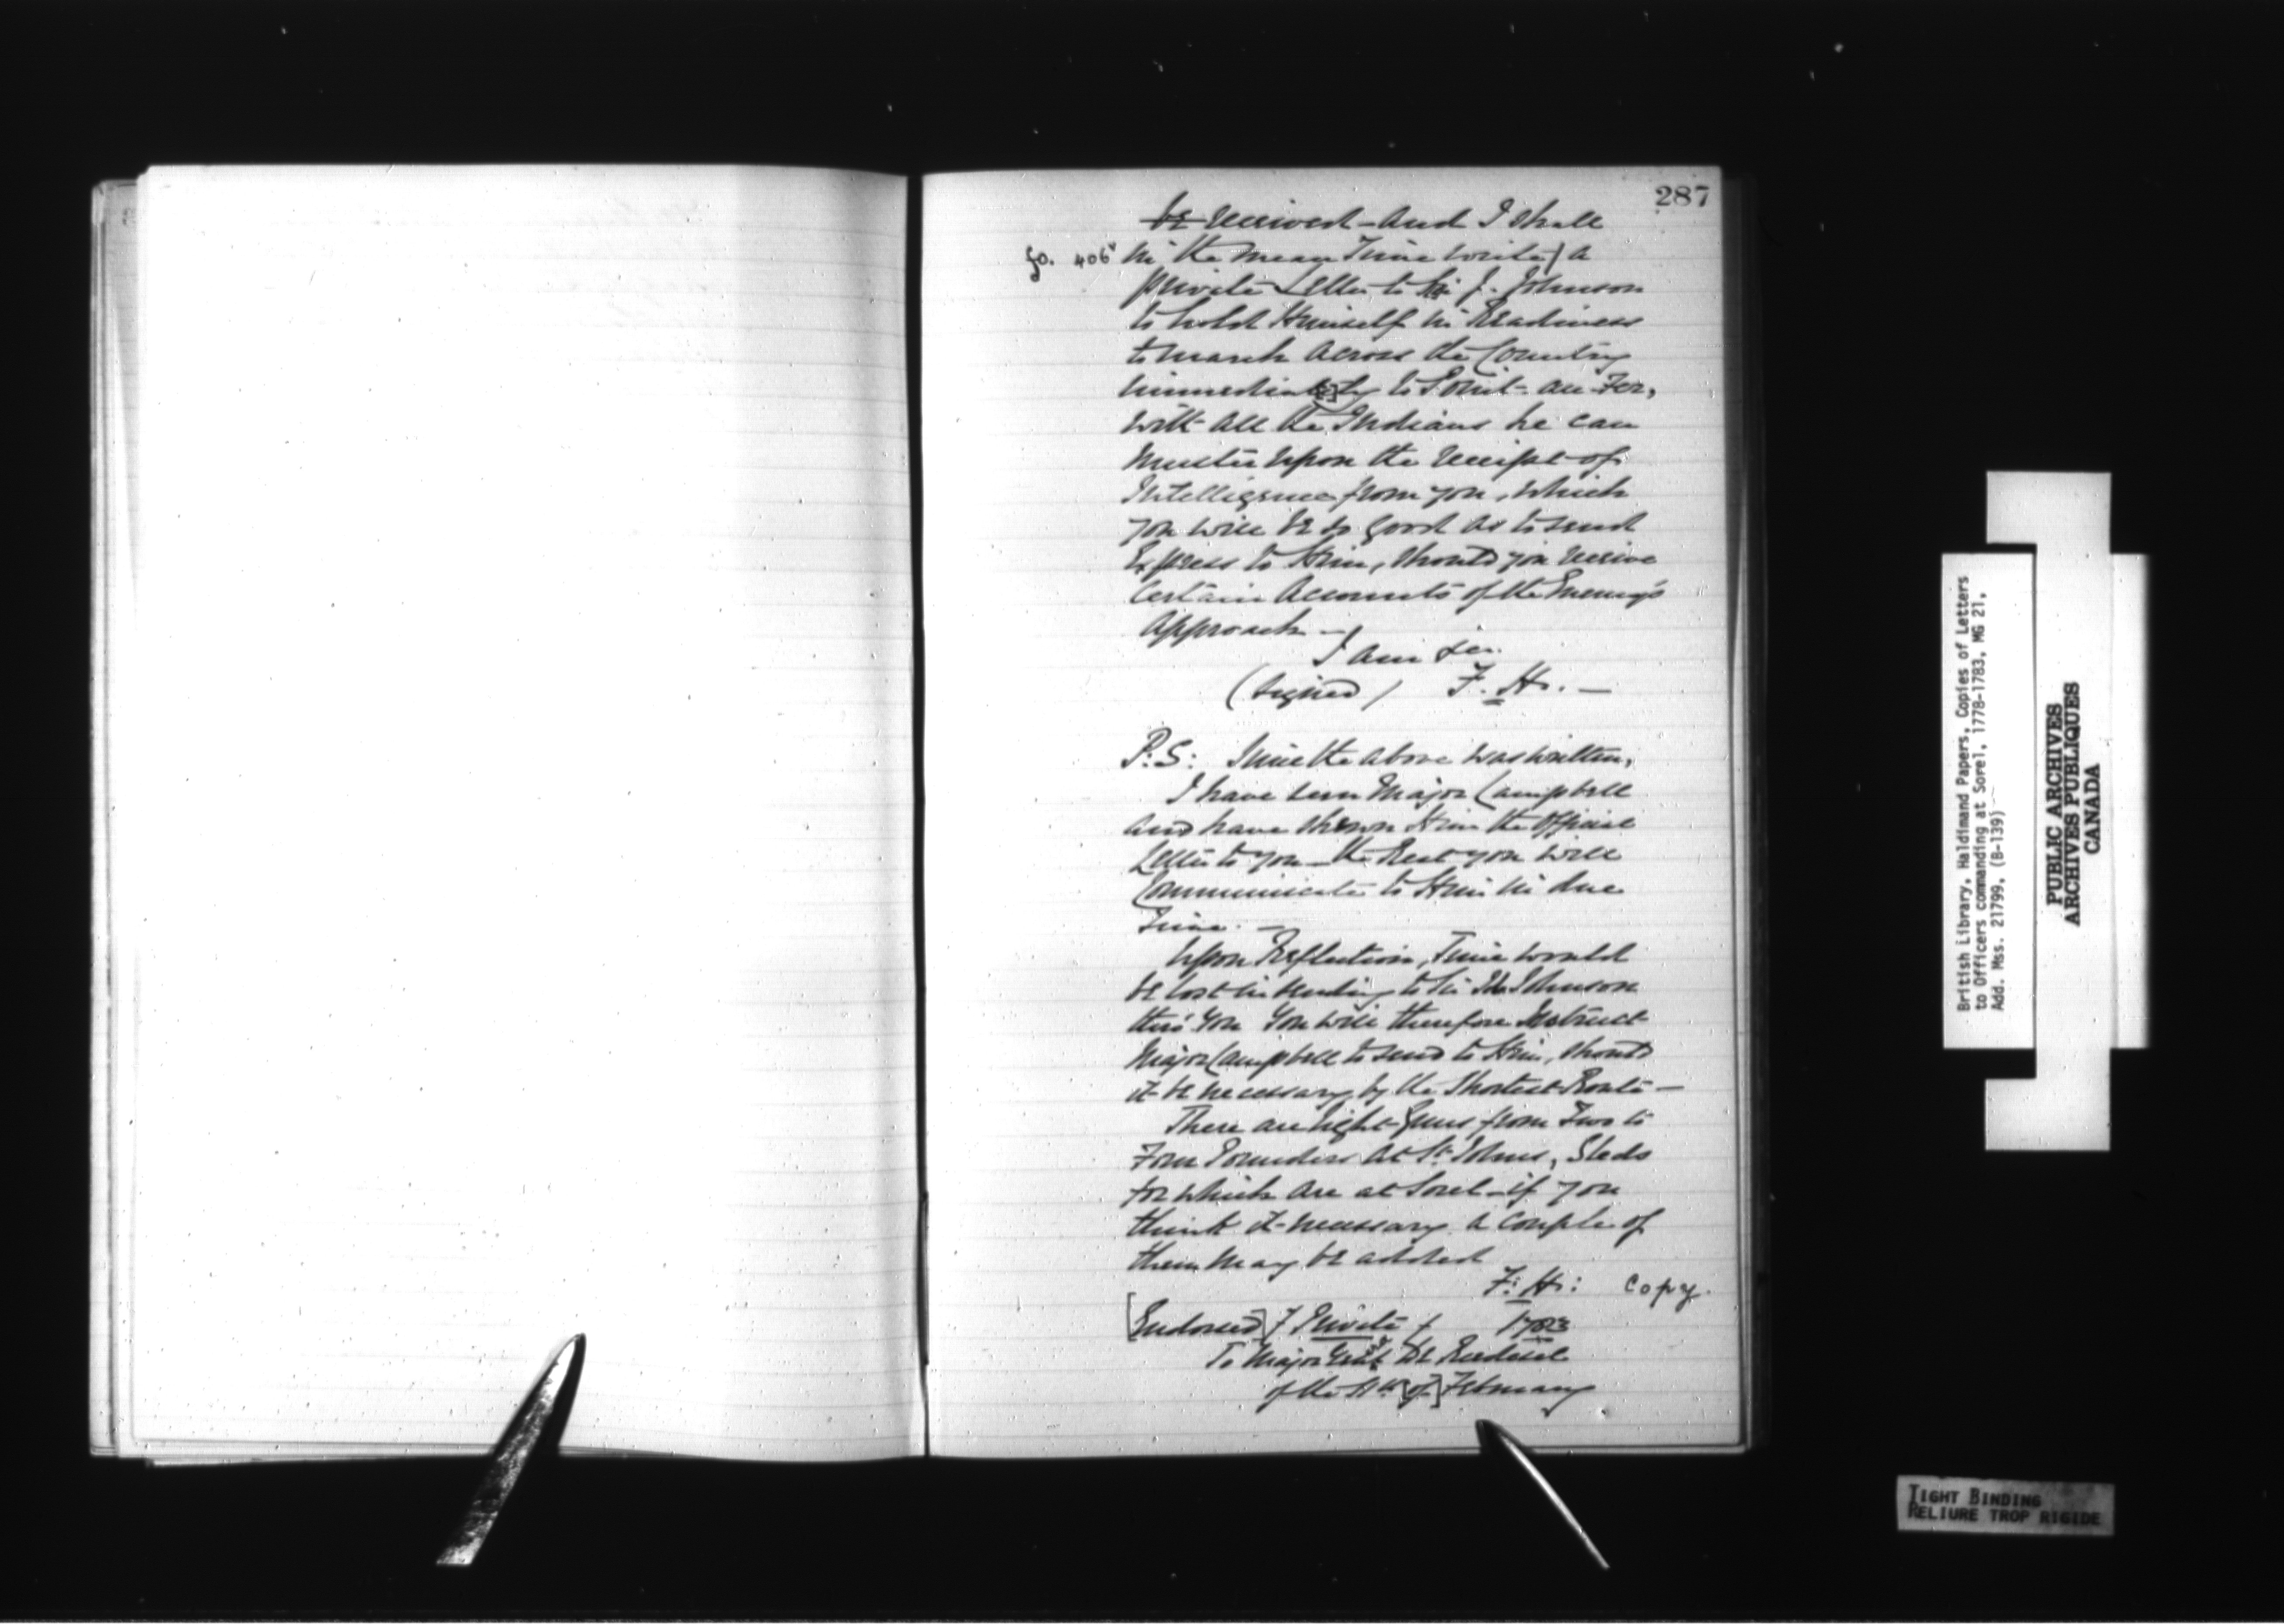 287
be received - and I shall
fo. 406v in the mean Time write) a
private Letter to Sir J. Johnson
to hold Himself in Readiness
to march across the Country
immediat[e]ly to Point-au-Fer,
with all the Indians he can
muster upon the receipt of
Intelligence from you, which
you will be so good as to send
Express to Him, should you receive
certain Accounts of the Enemy's
Approach —
I am &c.
(signed) F. H. —
P.S: Since the above was written,
I have seen Major Campbell
and have shewn Him the Official
Letter to you - the Rest you will
Communicate to Him in due
Time. —
Upon Reflection, Time would
be lost in sending to Sir Jn Johnson
thro' you You will therefore Instruct
Major Campbell to send to Him, should
it be necessary by the Shortest Route —
There are light Guns from Two to
Four Pounders at St Johns, Sleds
for which are at Sorel - if you
think it necessary a couple of
them may be added
F: H: Copy.
[Endorsed] Private 1783
To Major Genl De Riedesel
of the [of] February
British Library, Haldimand Papers, Copies of Letters
to Officers commanding at Sorel, 1778-1783, MG 21,
Add. Mss. 21799, (B-139)
PUBLIC ARCHIVES
ARCHIVES PUBLIQUES
CANADA
TIGHT BINDING
RELIURE TROP RIGIDE